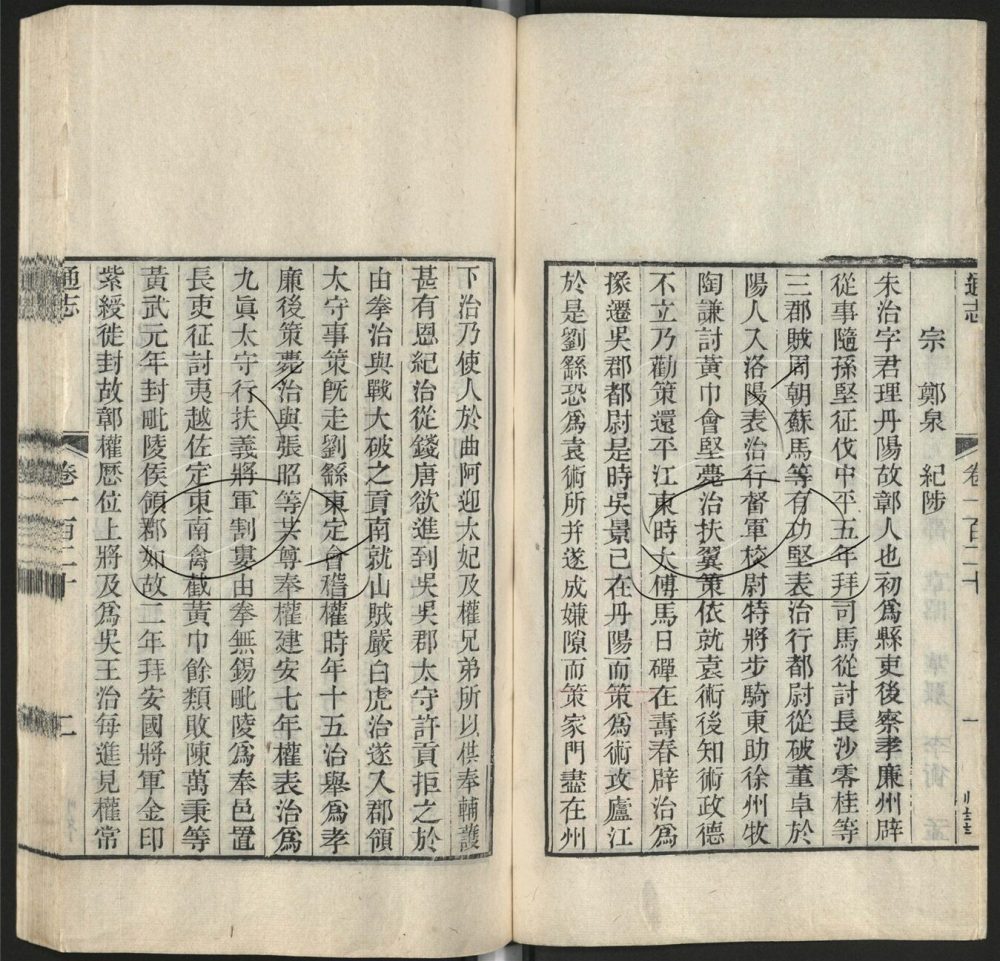 通志
卷一百二十
一
宗 鄭泉 紀陟
朱治字君理丹陽故鄣人也初爲縣吏後察孝廉州辟
從事隨孫堅征伐中平五年拜司馬從討長沙零桂等
三郡賊周朝蘇馬等有功堅表治行都尉從破董卓於
陽人入洛陽表治行督軍校尉特將步騎東助徐州牧
陶謙討黃巾會堅薨治扶翼策依就袁術後知術政德
不立乃勸策還平江東時太傅馬日磾在壽春辟治爲
掾遷吳郡都尉是時吳景已在丹陽而策爲術攻廬江
於是劉繇恐爲袁術所并遂成嫌隙而策家門盡在州
下治乃使人於曲阿迎太妃及權兄弟所以供奉輔護
甚有恩紀治從錢唐欲進到吳吳郡太守許貢拒之於
由拳治與戰大破之貢南就山賊嚴白虎治遂入郡領
太守事策旣走劉繇東定會稽權時年十五治舉爲孝
廉後策薨治與張昭等共尊奉權建安七年權表治爲
九眞太守行扶義將軍割婁由拳無錫毗陵爲奉邑置
長吏征討夷越佐定東南禽截黃巾餘類敗陳萬秉等
黃武元年封毗陵侯領郡如故二年拜安國將軍金印
紫綬徙封故鄣權歷位上將及爲吳王治每進見權常
通志
卷一百二十
二